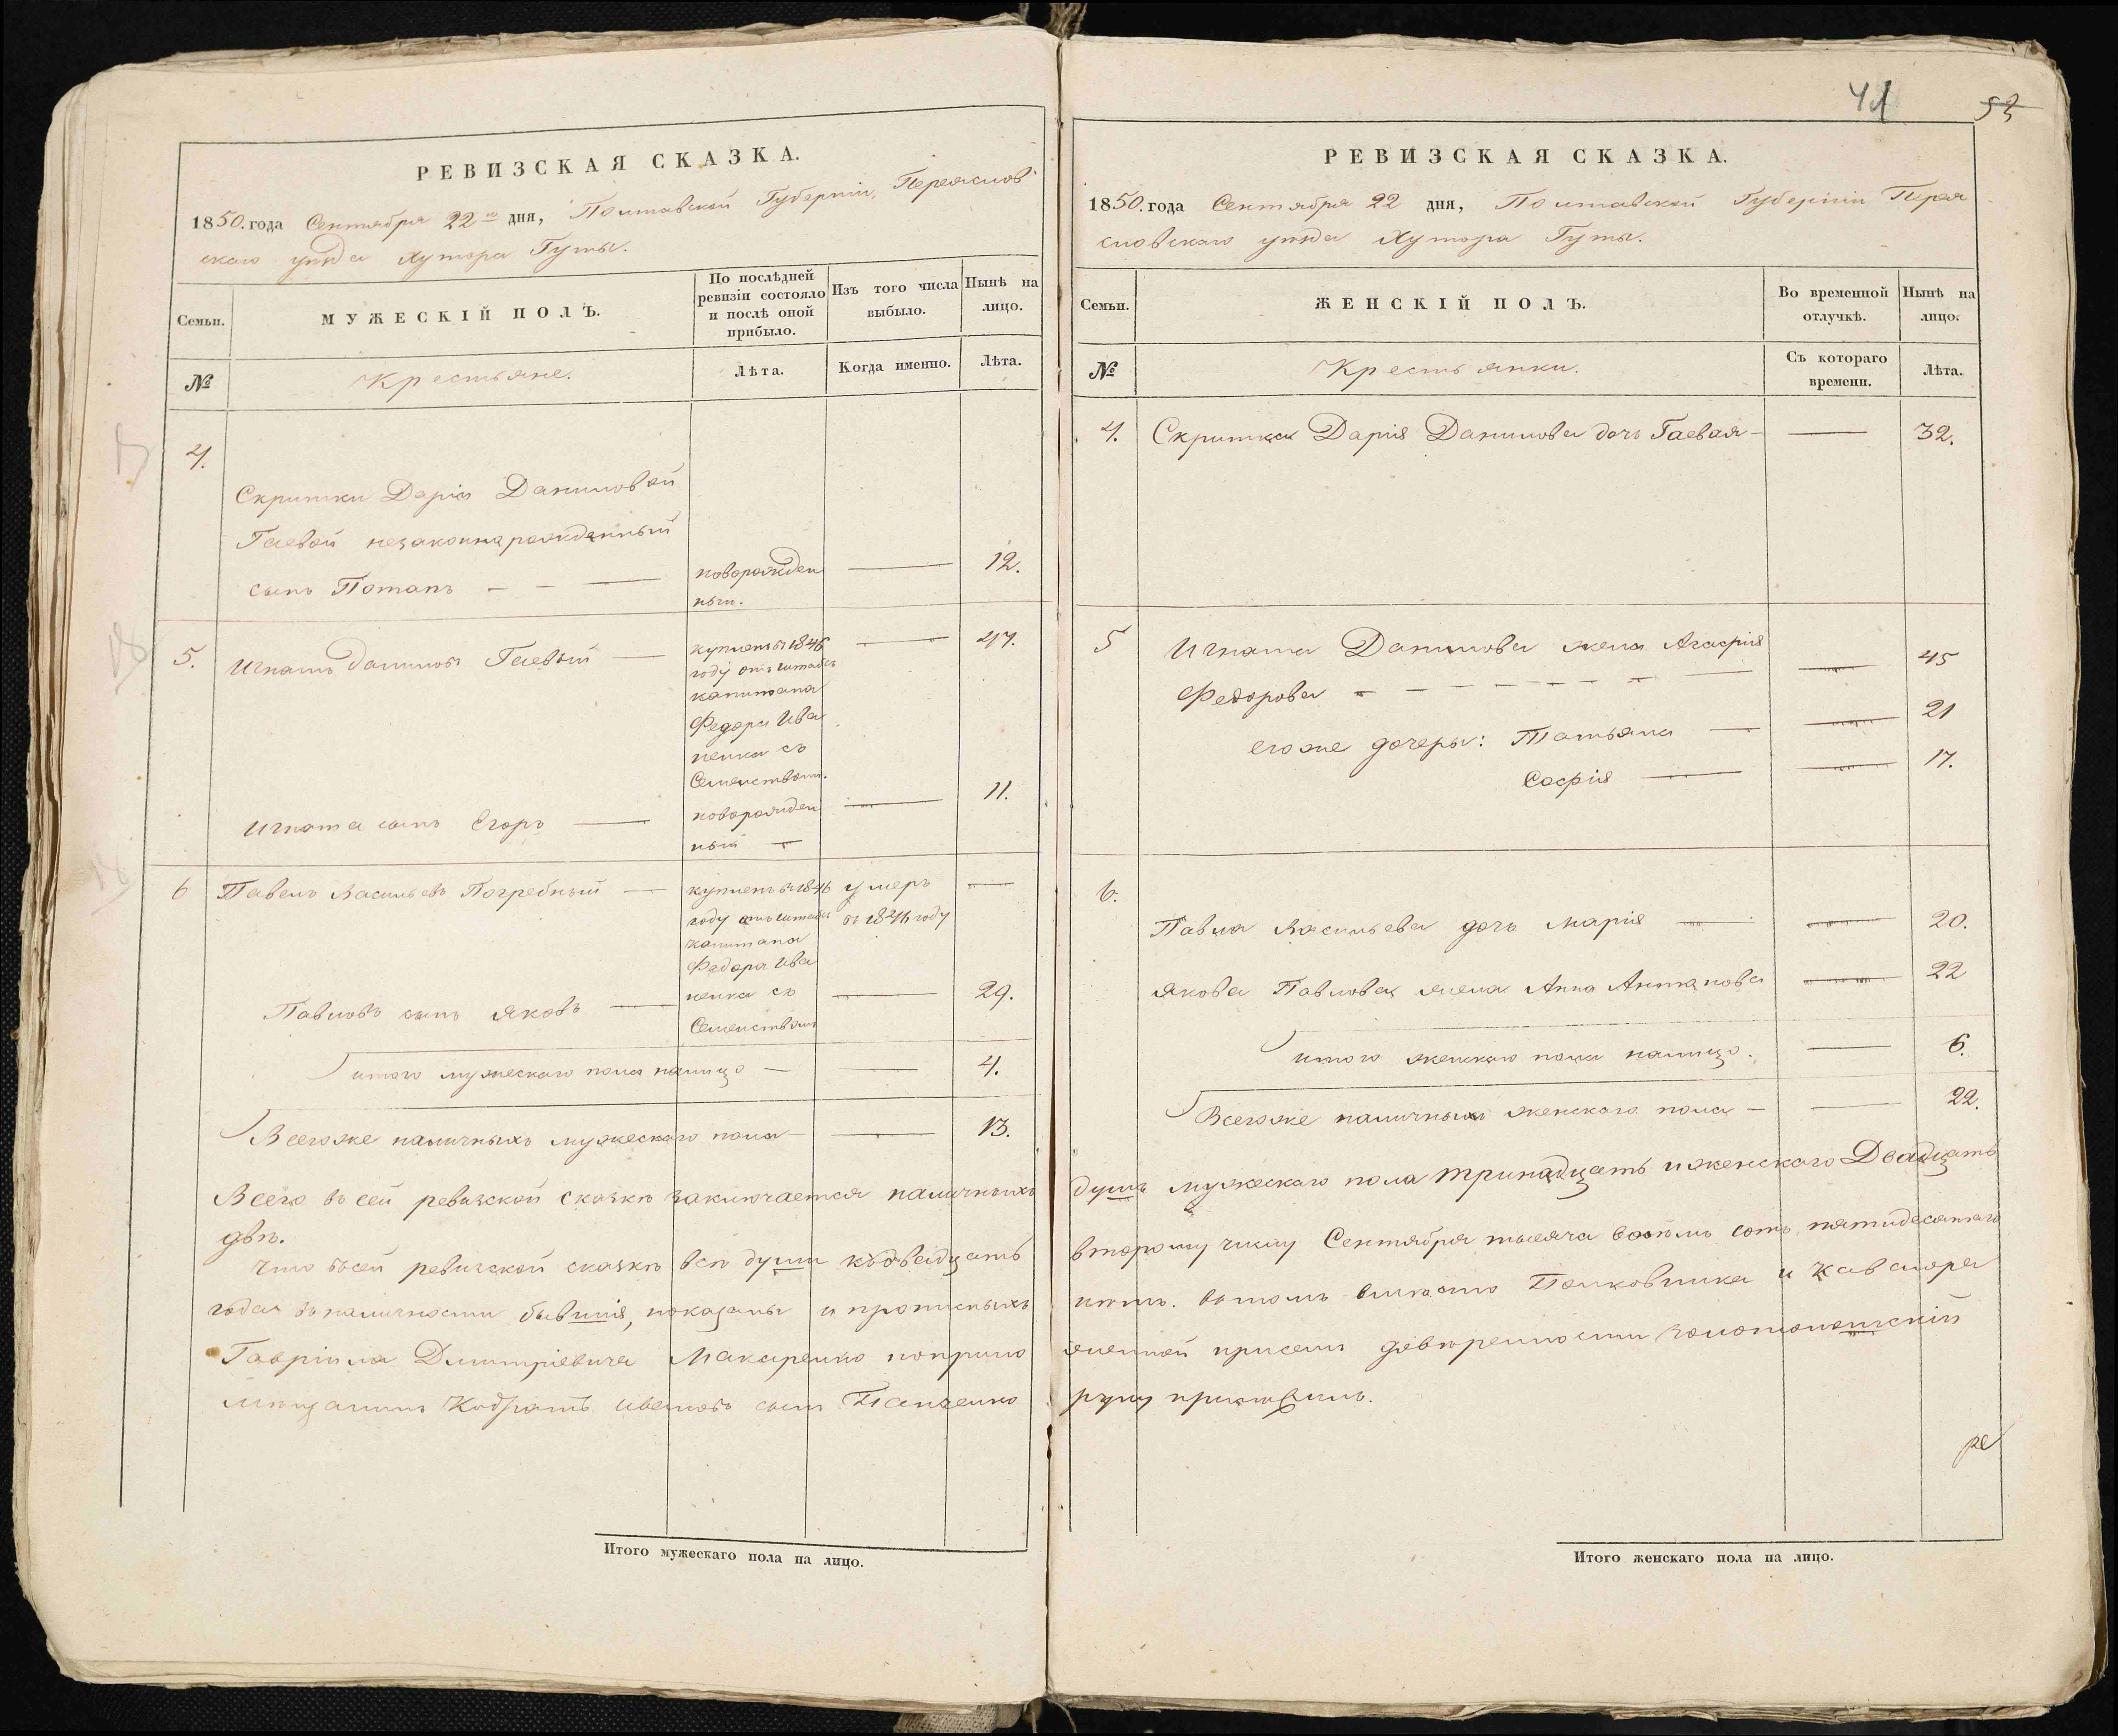 РЕВИЗСКАЯ СКАЗКА.
1850. года Сентября 22го дня, Полтавской Губерніи, Переяслов
скаго уѣзда Хутора Гуты.
Семьи.
МУЖЕСКІЙ ПОЛЪ.
По послѣдней
ревизіи состояло
и послѣ оной
прибыло.
Изъ того числа
выбыло.
Нынѣ на
лицо.
№
Крестьяне.
Лѣта.
Когда именно.
Лѣта.
4.
Скритки Даріи Даниловой
Гаевой незаконнарожденный
сынъ Потапъ — новорожден — 12.
ный.
5. Игнатъ Даниловъ Гаевый — купленъ въ 1846 — 47.
году отъ штабсъ
капитана
Федора Ива
ненка съ
Семействомъ.
Игната сынъ Егоръ — новорожден — 11.
ный —
6 Павелъ Васильевъ Погребный — купленъ въ 1846 умеръ —
году отъ штабсъ въ 1846 году
капитана
Федора Ива
Павловъ сынъ Яковъ — ненка съ — 29.
Семействомъ
итого мужескаго пола налицо — 4.
Всегоже наличныхъ мужескаго пола — 13.
Всего въ сей ревизской сказкѣ заключается наличныхъ
двѣ.
Что въсей ревизской сказкѣ всѣ души къдвадцать
годa въналичности бывшія, показаны и прописныхъ
Гавріила Дмитріевича Макаренко поприло
мѣщанинъ Кодратъ Ивановъ сынъ Панченко
Итого мужескаго пола на лицо.
41
53
РЕВИЗСКАЯ СКАЗКА.
1850. года Сентября 22 дня, Полтавской Губерніи Перея
словскаго уѣзда Хутора Гуты.
Семьи.
ЖЕНСКІЙ ПОЛЪ.
Во временной
отлучкѣ.
Нынѣ на
лицо.
№
Крестьянки.
Съ котораго
времени.
Лѣта.
4. Скритка Дарія Данилова дочь Гаевая — 32.
5 Игната Данилова жена Агафія
Федорова — 45
егоже дочеры: Татьяна — 21
Софія — 17.
6.
Павла Васильева дочь Марія — 20.
Якова Павлова жена Анна Антанова — 22
итого женскаго пола налицо. — 6.
Всегоже наличныхъ женскаго пола — 22.
душъ мужескаго пола тринадцать иженскаго Двадцать
второму числу Сентября тысяча восемь сотъ пятидесятаго
нѣтъ. вътомъ вмѣсто Полковника и Кавалера
женной присемъ довѣренности золотоношскій
руку приложилъ.
ре
Итого женскаго пола на лицо.